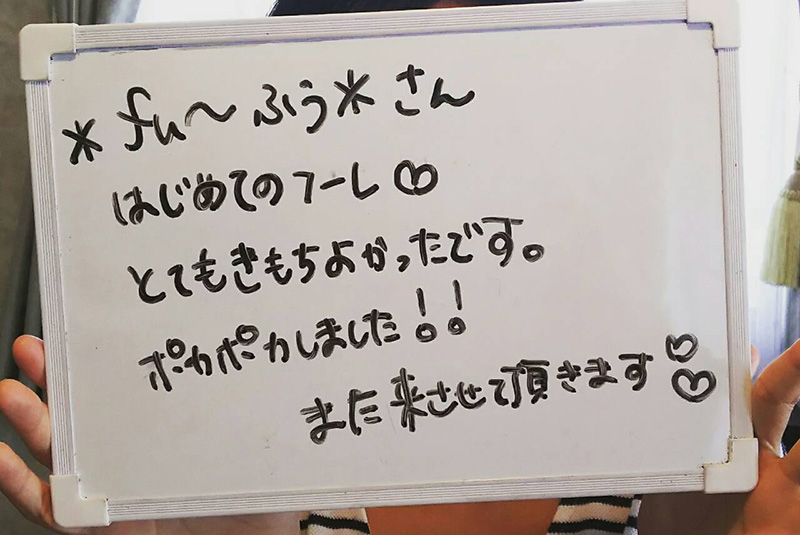 *fu〜ふう*さん
はじめてのフーレ♡
とてもきもちよかったです。
ポカポカしました!!
また来させて頂きます♡♡